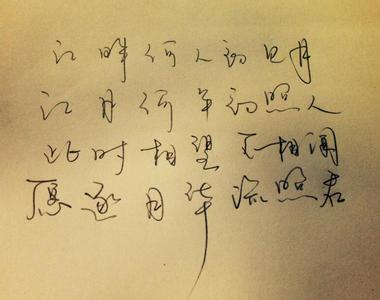 江畔何人初见月
江月何年初照人
此时相望不相闻
愿逐月华流照君